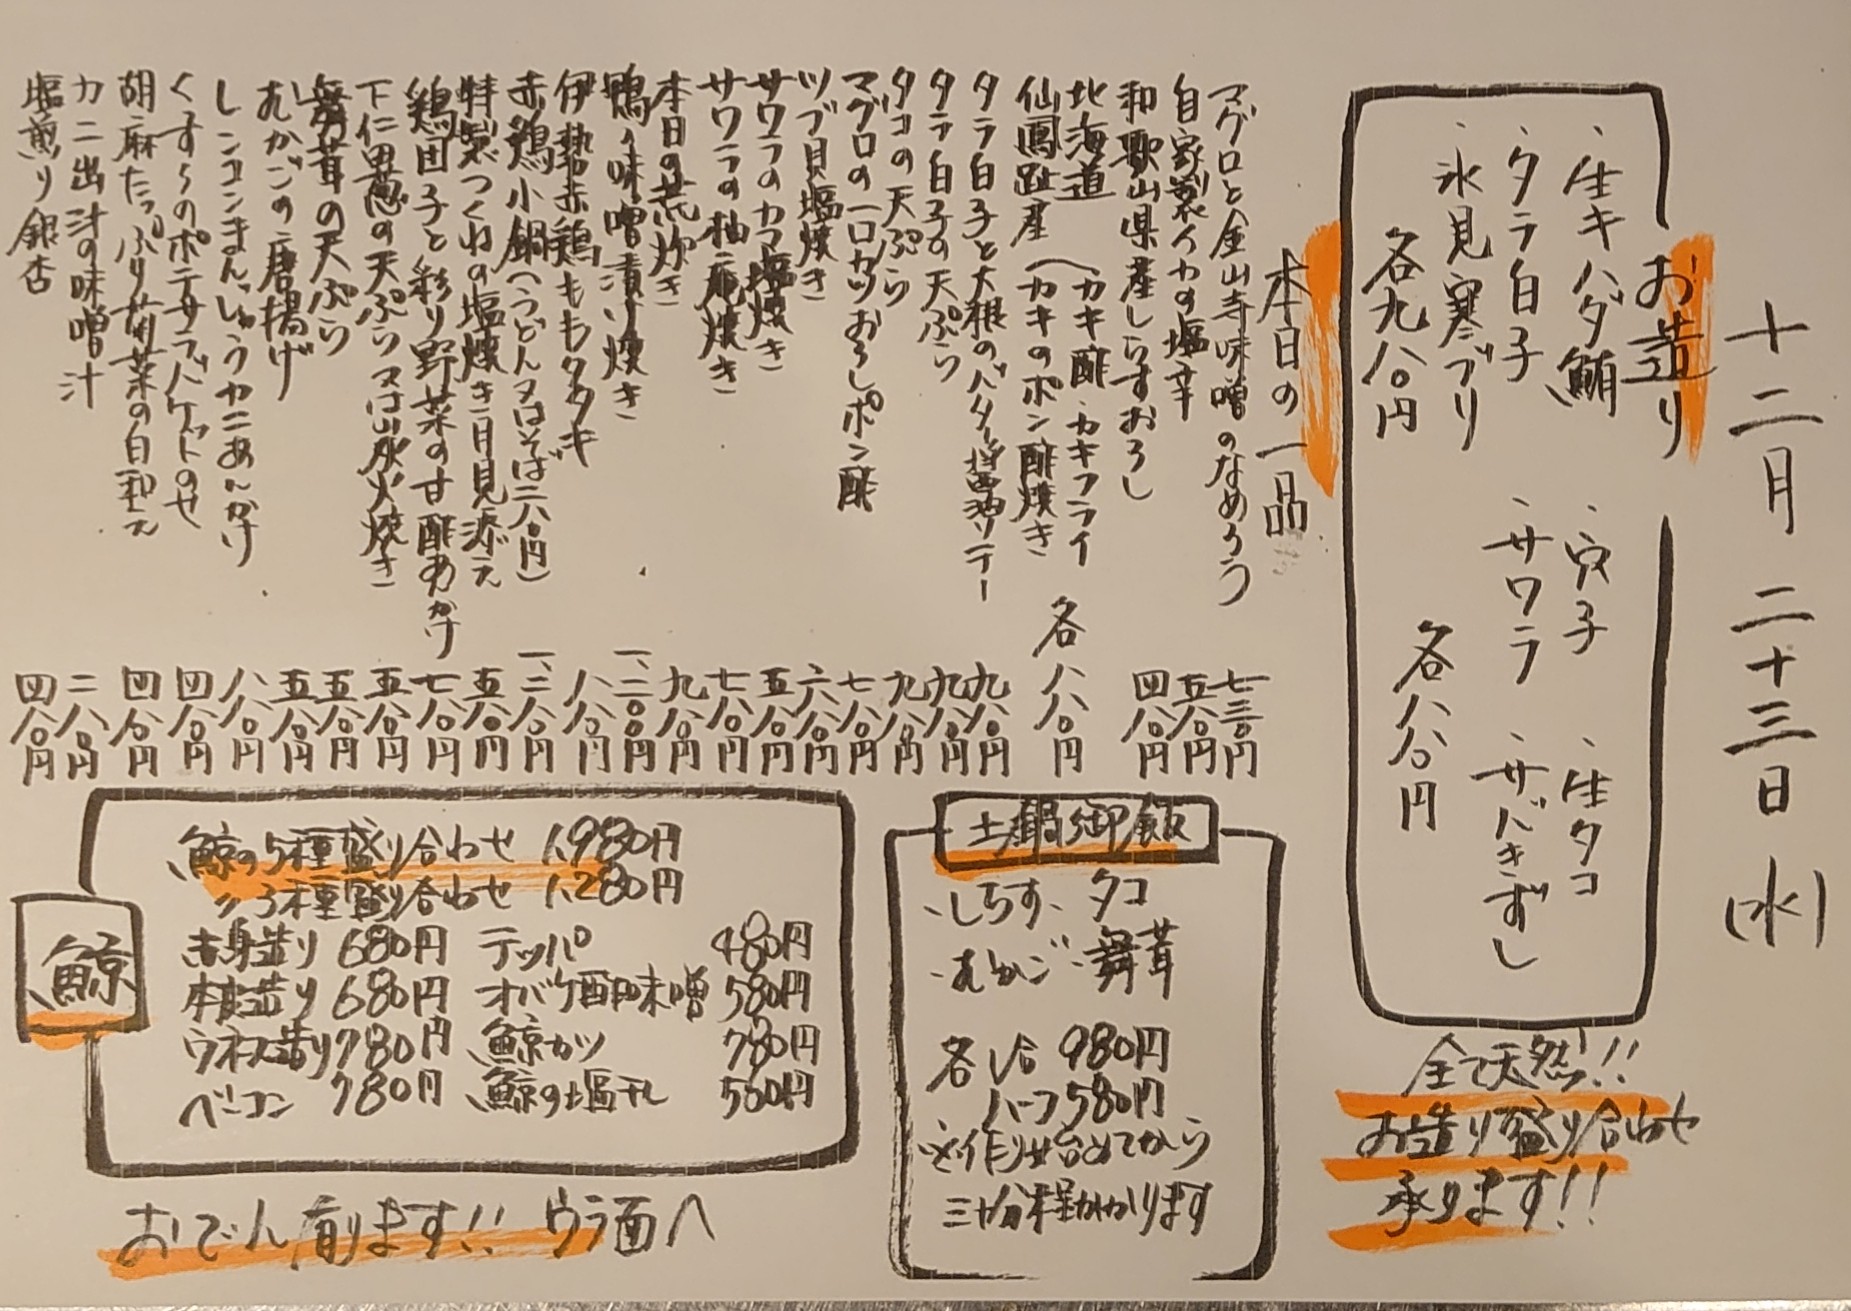 十二月二十三日(水)
お造り
・生キハダ鮪 ・穴子 ・生タコ
・タラ白子 ・サワラ ・サバきずし
・氷見寒ブリ
各九八〇円 各八八〇円
全て天然!!
お造り盛り合わせ
承ります!!
本日の一品
マグロと金山寺味噌のなめろう 七三〇円
自家製イカの塩辛 五八〇円
和歌山県産しらすおろし 四八〇円
北海道 (カキ酢・カキフライ
仙鳳趾産 (カキのポン酢焼き 各八八〇円
タラ白子と大根のバター醤油ソテー 九八〇円
タラ白子の天ぷら 九八〇円
タコの天ぷら 九八〇円
マグロの一口カツおろしポン酢 七八〇円
ツブ貝塩焼き 六八〇円
サワラのカマ塩焼き 五八〇円
サワラの柚庵焼き 七八〇円
本日の荒炊き 九八〇円
鴨の味噌漬け焼き
伊勢赤鶏ももタタキ 八八〇円
赤鶏小鍋(うどん又はそば二八〇円)
特製つくねの塩焼き 月見添え 五八〇円
鶏団子と彩り野菜の甘酢あんかけ 七八〇円
下仁田葱の天ぷら又は炭火焼き 五八〇円
舞茸の天ぷら 五八〇円
むかごの唐揚げ 五八〇円
レンコンまんじゅうカニあんかけ 八八〇円
くずしのポテサラ バケットのせ 四八〇円
胡麻たっぷり菊菜の白和え 四八〇円
カニ出汁の味噌汁 二八〇円
塩煎り銀杏 四八〇円
土鍋御飯
・しらす ・タコ
・むかご ・舞茸
各1合 980円
ハーフ 580円
※作り始めてから
三十分程かかります
鯨
鯨の5種盛り合わせ 1,980円
〃3種盛り合わせ 1,280円
赤身造り 680円 テッパ 480円
本皮造り 680円 オバケ酢味噌 580円
ウネス造り 780円 鯨カツ 780円
ベーコン 780円 鯨の塩干し 580円
おでん有ります!! ウラ面へ